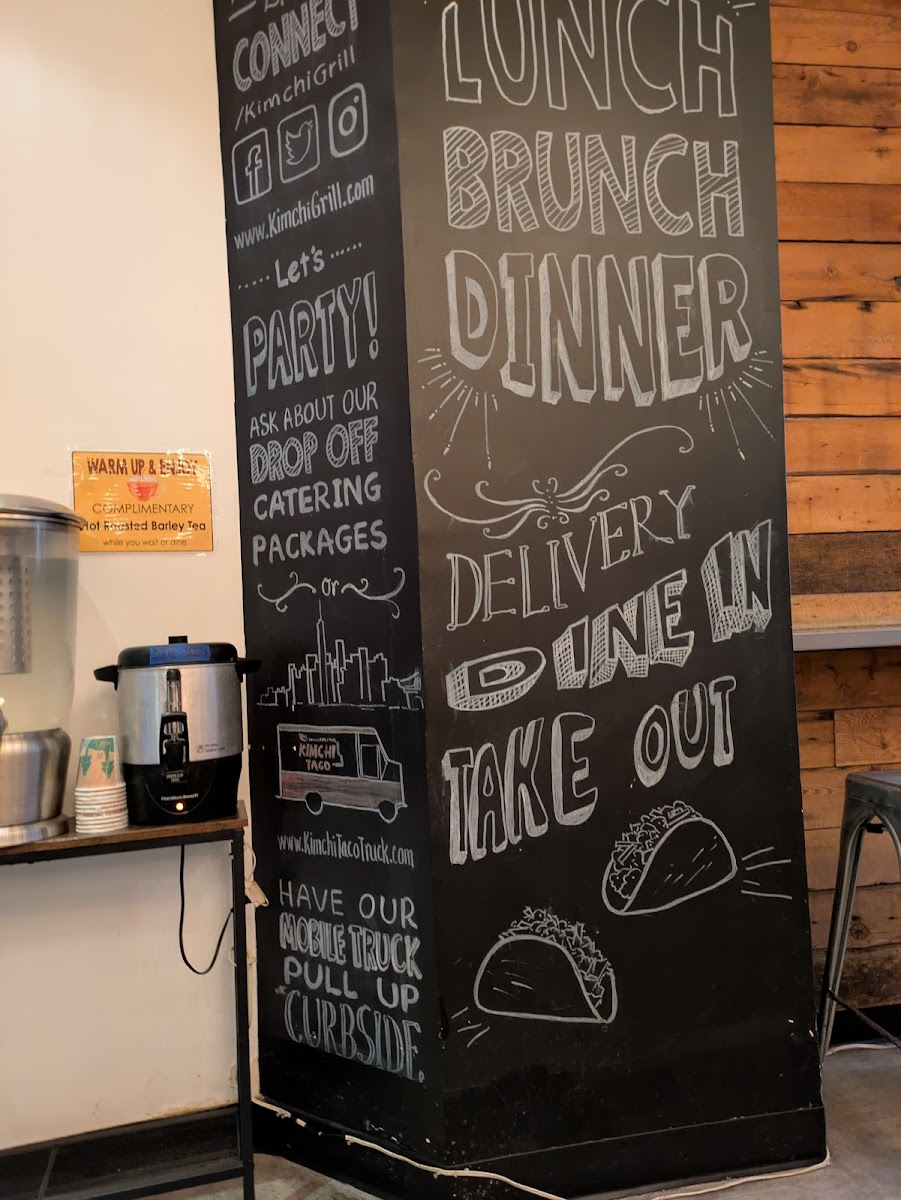 CONNECT
/KimchiGrill
www.KimchiGrill.com
Let's
PARTY!
ASK ABOUT OUR
DROP OFF
CATERING
PACKAGES
or
KIMCHI
TACO
www.KimchiTacoTruck.com
HAVE OUR
MOBILE TRUCK
PULL UP
CURBSIDE.
LUNCH
BRUNCH
DINNER
DELIVERY
DINE IN
TAKE OUT
WARM UP & ENJOY
COMPLIMENTARY
Hot Roasted Barley Tea
while you wait or dine
Hamilton Beach